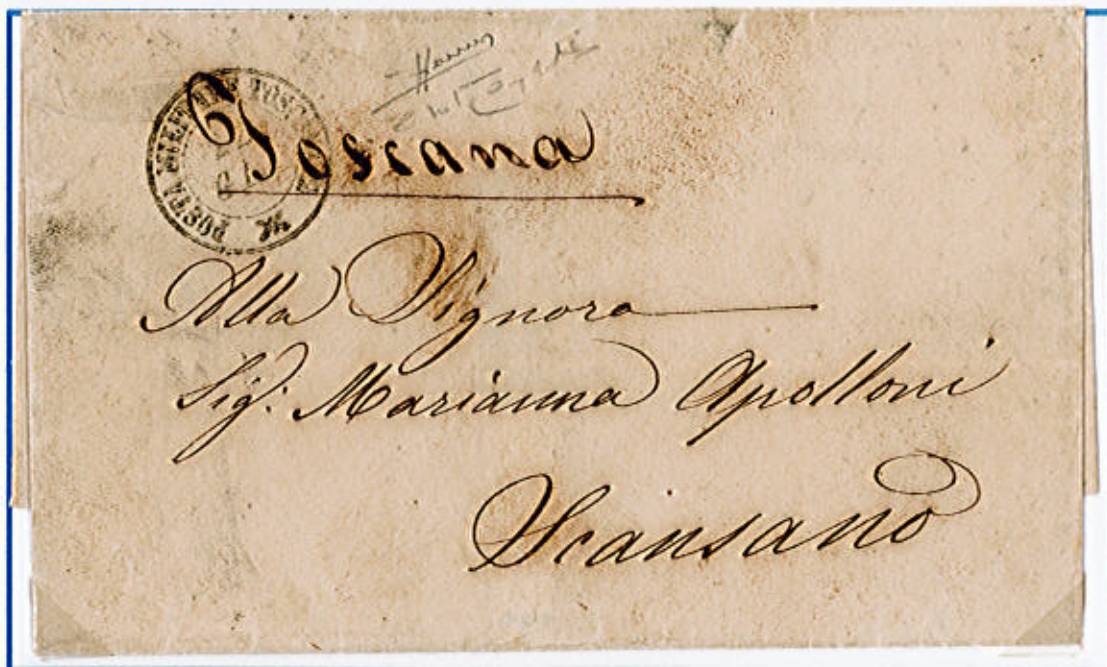 POSTA MILITARE TOSCANA
Toscana
Alla Signora
Sig: Marianna Apolloni
Scansano